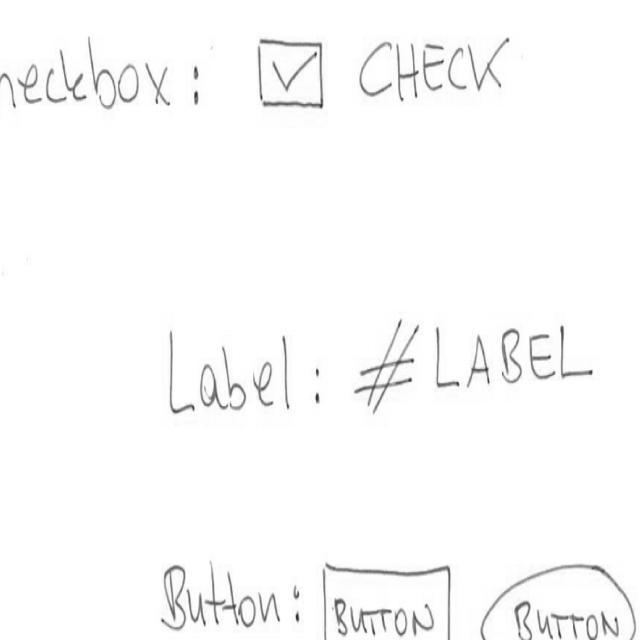 heckbox: ☑ CHECK
Label: #LABEL
Button: BUTTON BUTTON